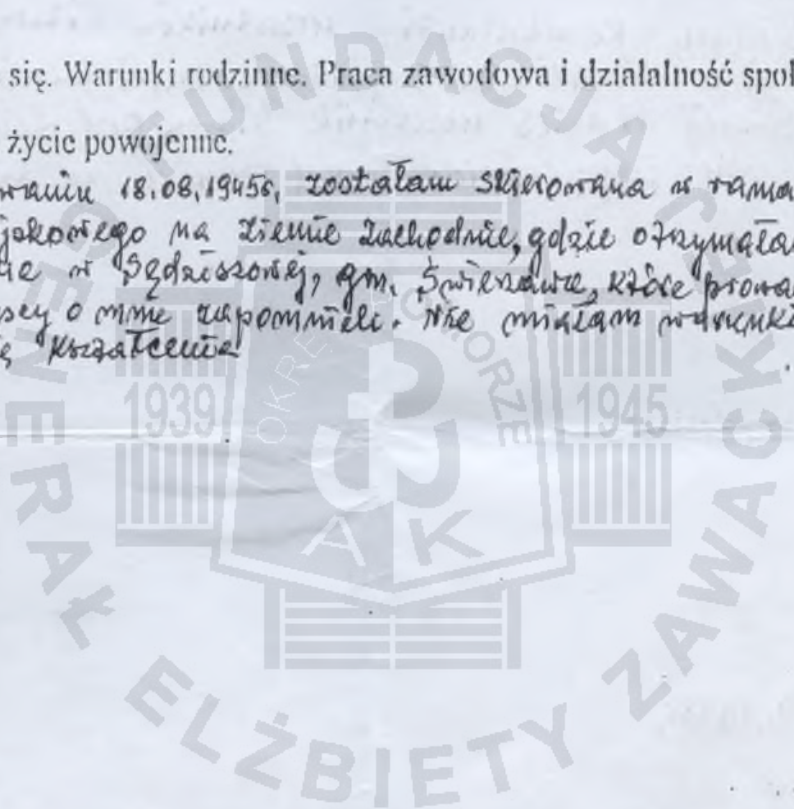 się. Warunki rodzinne. Praca zawodowa i działalność społ
życie powojenne.
waniu 18.08.1945r, zostałam skierowana w rama
jskowego na ziemie zachodnie, gdzie otrzymała
ie w Sędziszowej, gm. Świerzawa, które prowa
scy o mnie zapomnieli. Nie miałam warunkó
ę kształcenia
FUNDACJA GENERAŁ ELŻBIETY ZAWACKIEJ
OKRĘG POMORZE
1939 1945
AK